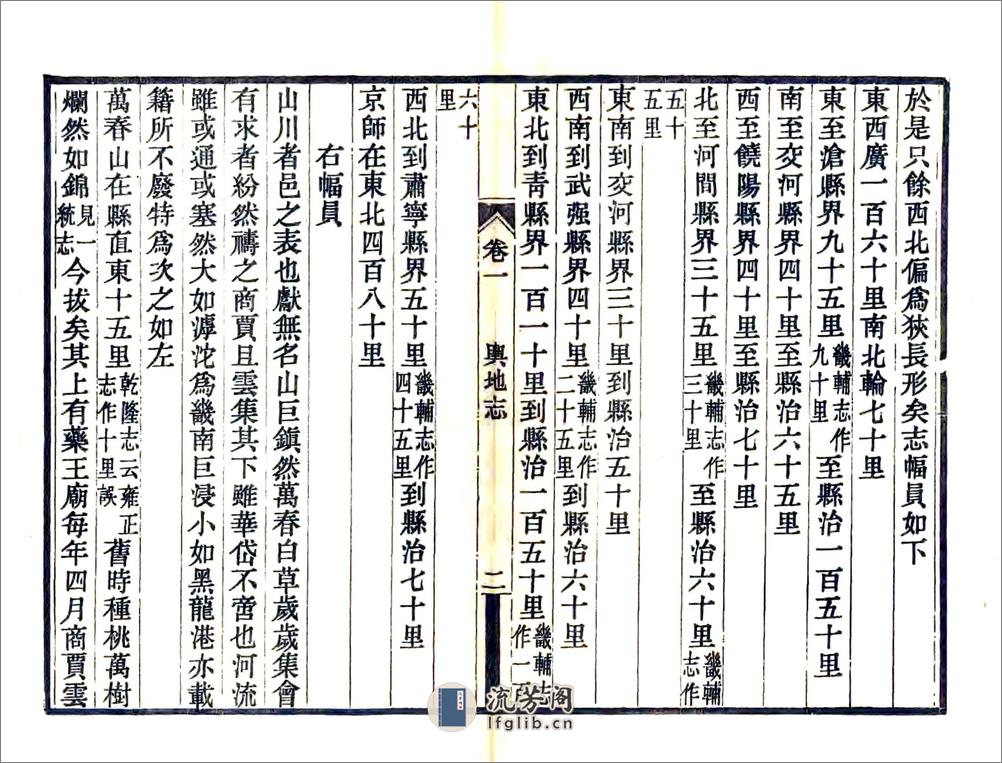 於是只餘西北偏爲狹長形矣志幅員如下
東西廣一百六十里南北輪七十里
東至滄縣界九十五里畿輔志作九十里至縣治一百五十里
南至交河縣界四十里至縣治六十五里
西至饒陽縣界四十里至縣治七十里
北至河間縣界三十五里畿輔志作三十里至縣治六十里畿輔志作
五十五里
東南到交河縣界三十里到縣治五十里
西南到武强縣界四十里畿輔志作二十五里到縣治六十里
東北到青縣界一百一十里到縣治一百五十里畿輔志作一百
卷一 輿地志 二
六十里
西北到肅寧縣界五十里畿輔志作四十五里到縣治七十里
京師在東北四百八十里
右幅員
山川者邑之表也獻無名山巨鎮然萬春白草歲歲集會
有求者紛然禱之商賈且雲集其下雖華岱不啻也河流
雖或通或塞然大如滹沱爲畿南巨浸小如黑龍港亦載
籍所不廢特爲次之如左
萬春山在縣直東十五里乾隆志云雍正志作十里誤舊時種桃萬樹
爛然如錦見一統志今拔矣其上有藥王廟每年四月商賈雲
流芳阁
lfglib.cn